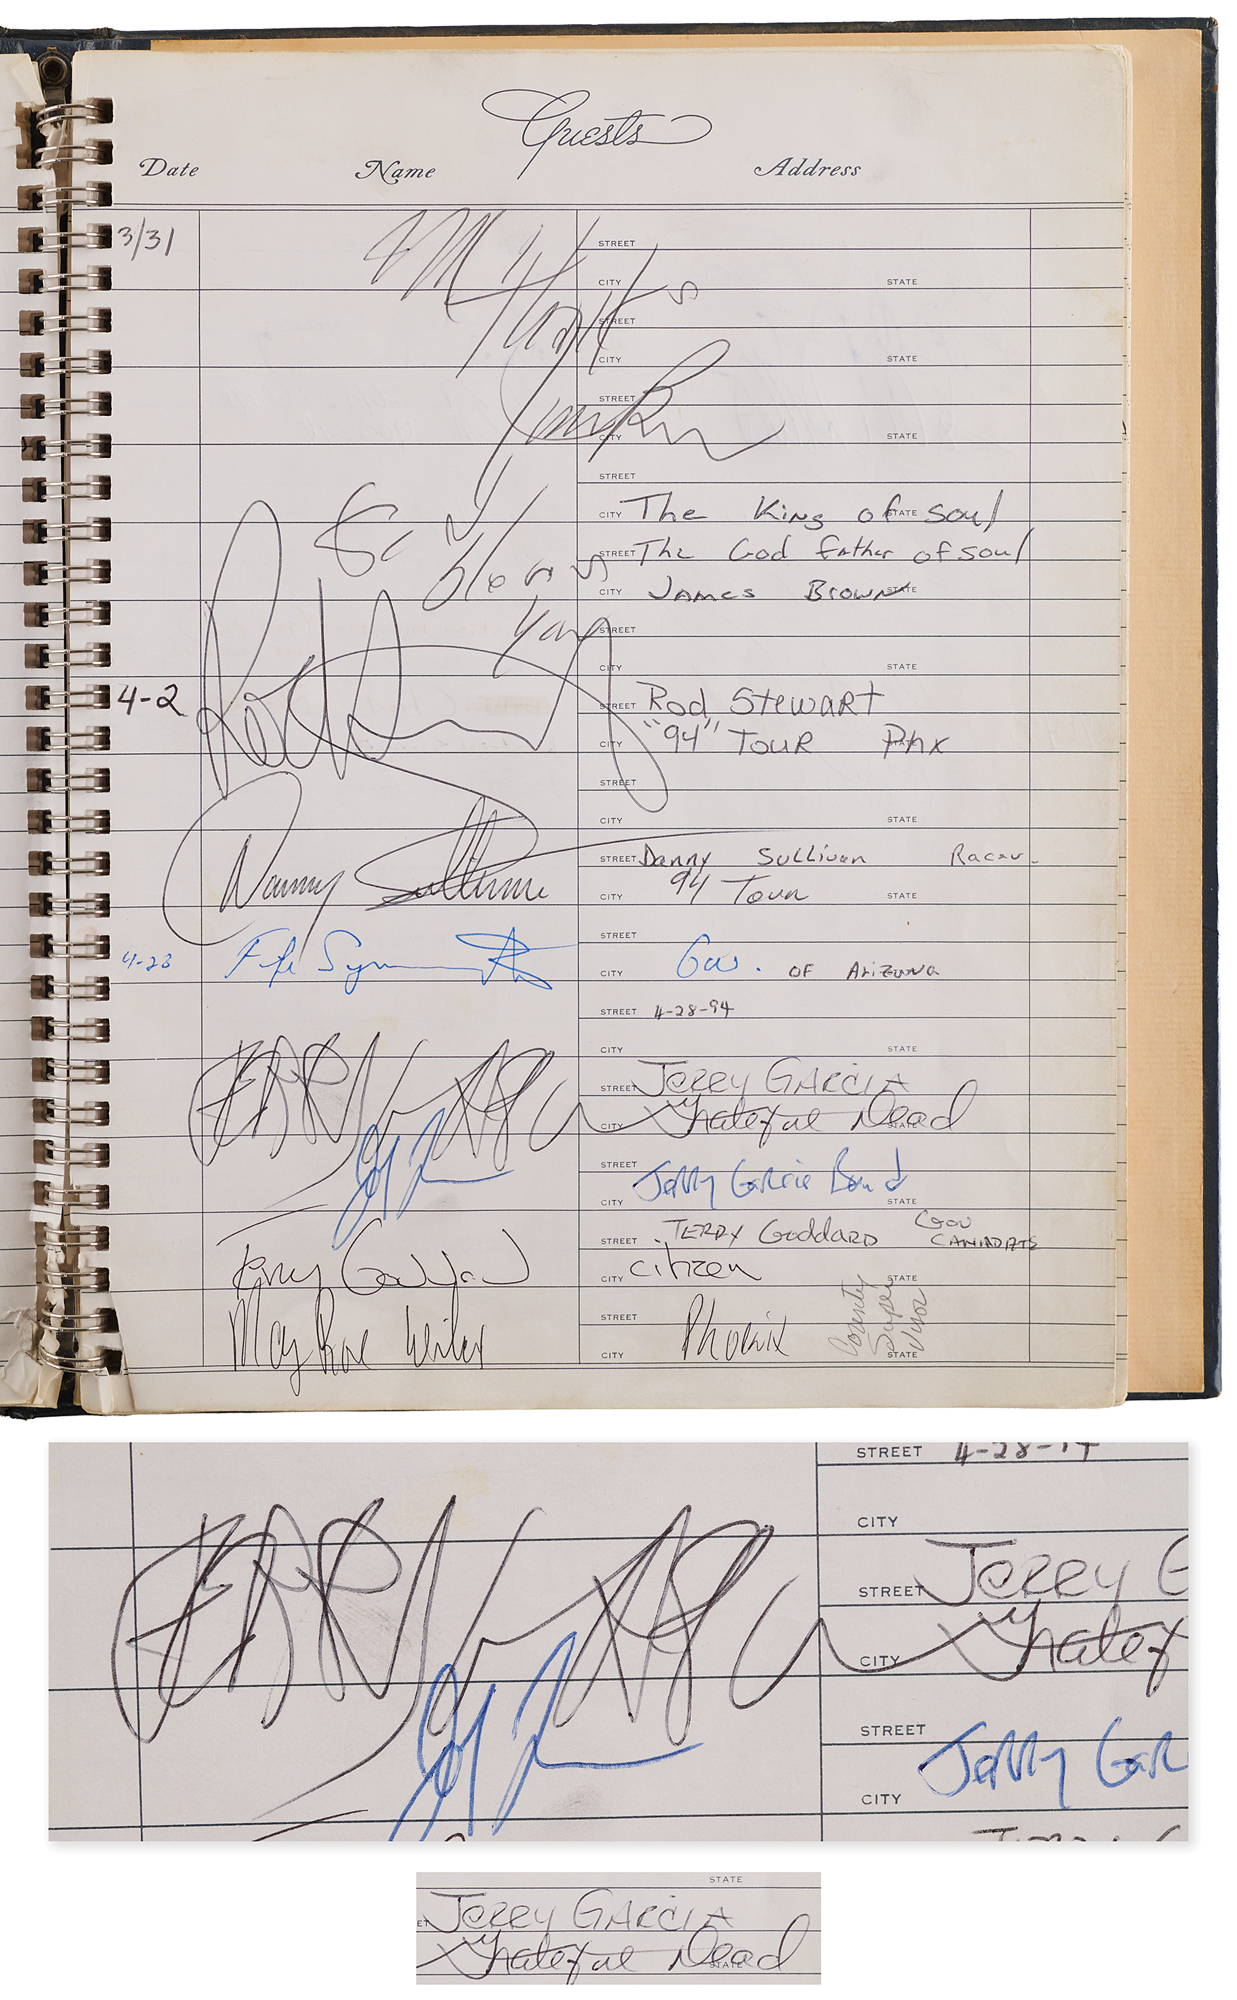 Guests
Date Name Address
3/31
STREET
CITY STATE
Many Thanks
STREET
CITY STATE
STREET
CITY STATE
STREET
CITY The King of soul STATE
STREET The God father of soul
CITY James Brown STATE
God bless you
STREET
CITY STATE
4-2 STREET Rod Stewart
CITY "94" Tour Phx STATE
STREET
CITY STATE
Danny Sullivan STREET Danny Sullivan Racer
CITY 94 Tour STATE
STREET
4-28 Fife Symington CITY Gov. OF Arizona
STREET 4-28-94
CITY STATE
STREET Jerry Garcia
CITY Grateful Dead STATE
STREET Jerry Garcia Band
CITY STATE
STREET Terry Goddard Gov
CANIDATE
Terry Goddard CITY citizen STATE
STREET County
Super
visor
Mary Rose Wilcox CITY Phoenix STATE
STREET 4-28-94
CITY
STREET Jerry G
CITY Gratef
STREET Jerry Gar
CITY
STATE
Jerry Garcia
Grateful Dead
STATE